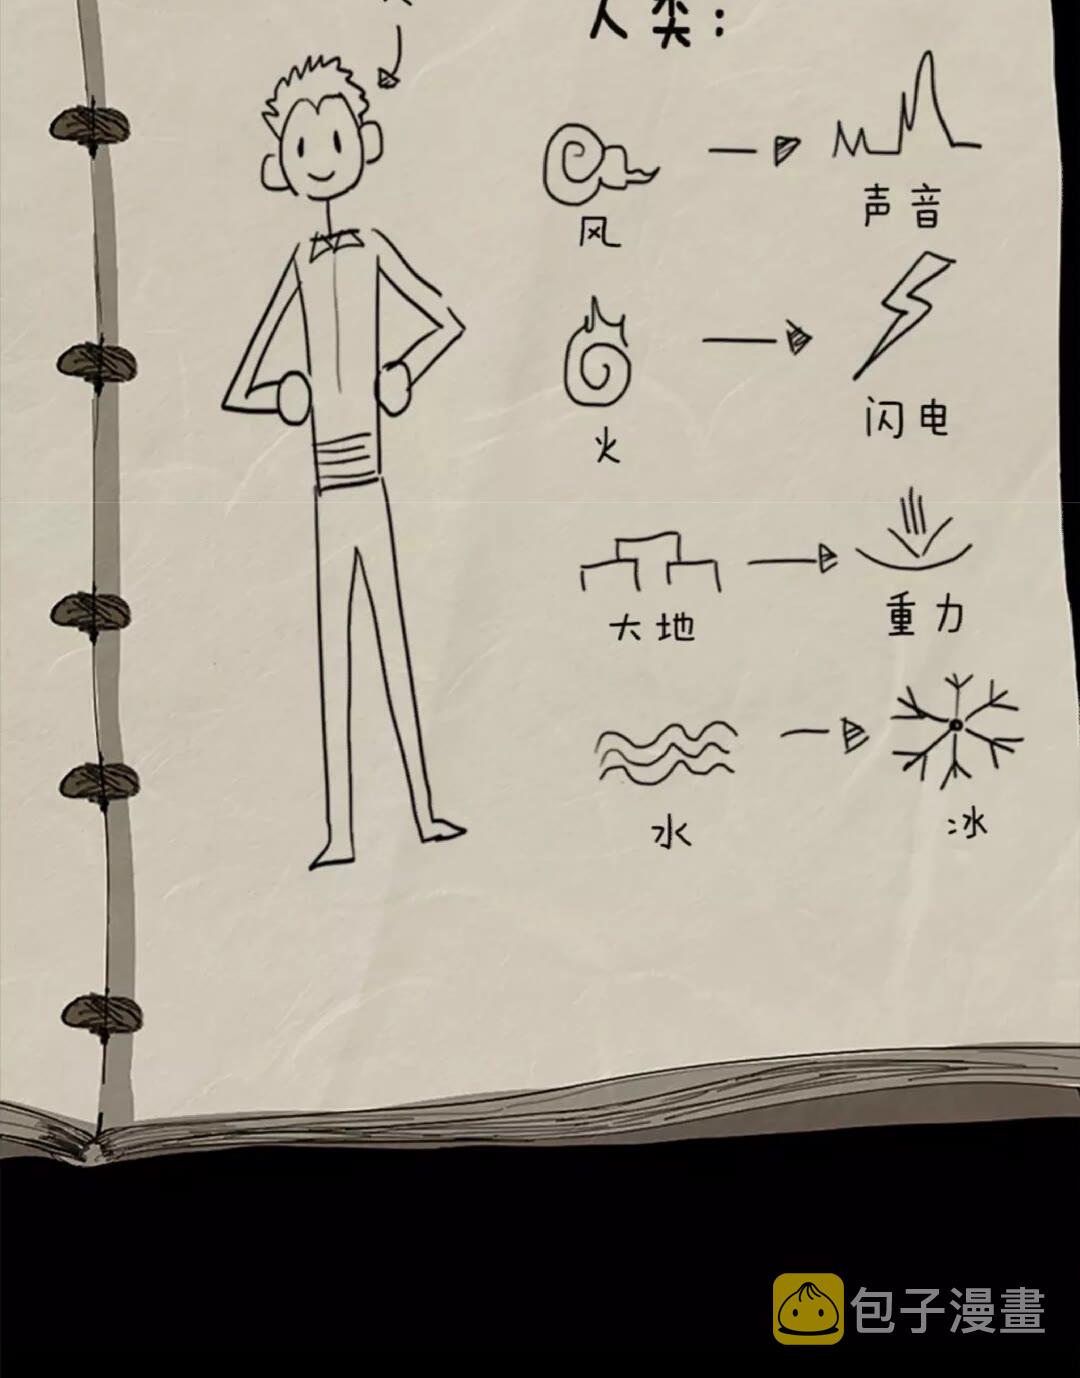 人类：
风
声音
火
闪电
大地
重力
水
冰
包子漫畫